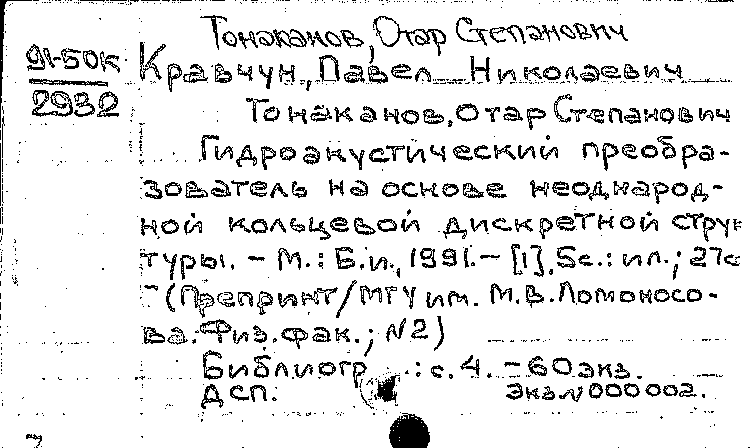 Тонаканов, Отар Степанович
91-50К
2932
Кравчун, Павел Николаевич
Тонаканов, Отар Степанович
Гидроакустический преобра-
зователь на основе неоднарод-
ной кольцевой дискретной струк
туры. - М.: Б.и., 1991. - [1], 5с.: ил.; 27с
- (Препринт/МГУ им. М.В.Ломоносо-
ва. Физ.фак.; N2)
Библиогр.: с.4. - 60 экз.
ДСП. экз.N 000002.